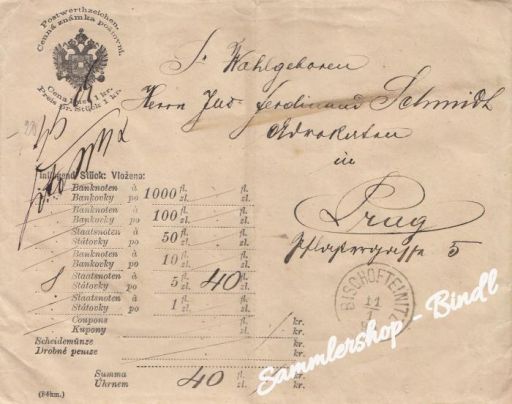 Postwerthzeichen.
Cenná známka poštovní.
Cena kusu 1 kr.
Preis pr. Stück 1 kr.
Sr Wohlgeboren
Herrn Jud Ferdinand Schmidt
Advokaten
in
Prag
Pflastergasse 5
Inliegend Stück: Vloženo:
Banknoten à fl. fl.
Bankovky po 1000 zl. zl.
Banknoten à fl. fl.
Bankovky po 100 zl. zl.
Staatsnoten à fl. fl.
Státovky po 50 zl. zl.
Banknoten à fl. fl.
Bankovky po 10 zl. zl.
8 Staatsnoten à fl. 40 fl.
Státovky po 5 zl. zl.
Staatsnoten à fl. fl.
Státovky po 1 zl. zl.
Coupons fl. kr.
Kupony zl. kr.
Scheidemünze kr.
Drobné peníze kr.
Summa 40 fl. kr.
Úhrnem zl. kr.
(84km.)
BISCHOFTEINITZ
11
1
Sammlershop - Bindl